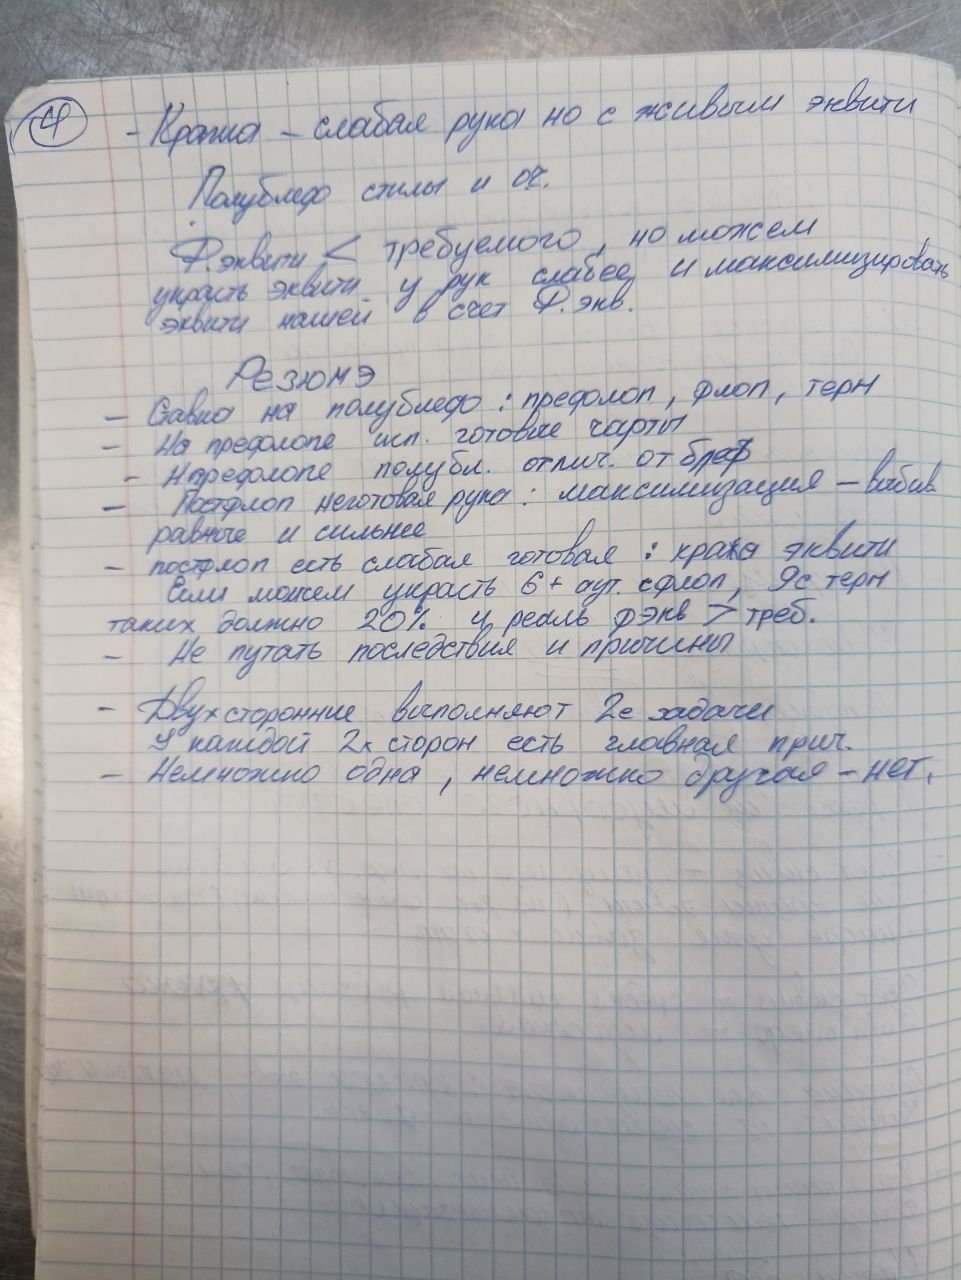 4
- Кража - слабая рука но с живым эквити
Полублеф стилы и оч.
Ф.эквити < требуемого, но можем
украсть эквити у рук слабее и максимизировать
эквити нашей в счет Ф.экв.
Резюмэ
- Ставка на полублефо : префлоп, флоп, терн
- На префлопе исп. готовые чарты
- Нпрефлопе полубл. отлич. от блеф
- Постфлоп неготовая рука : максимизация - выбив
равные и сильнее
- постфлоп есть слабая готовая : кража эквити
Если можем украсть 6+ аут. с флоп, 9с терн
таких должно 20% и реаль фэкв > треб.
- Не путать последствия и причины
- Двухсторонние выполняют 2е задачи
У каждой 2х сторон есть главная прич.
- Немножко одна, немножко другая - нет.